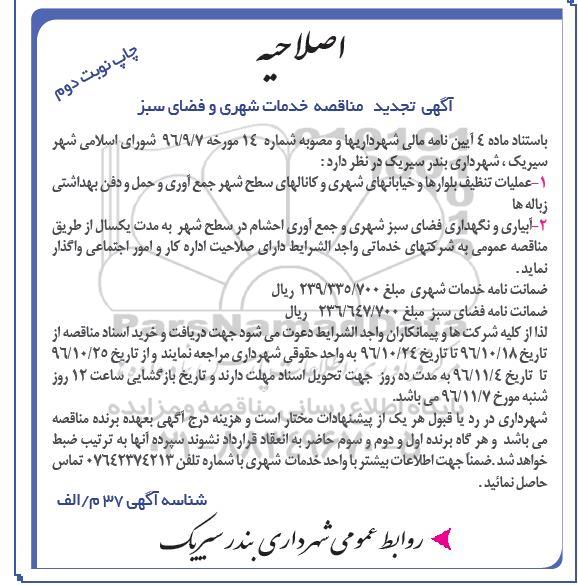 اصلاحیه
چاپ نوبت دوم
آگهی تجدید مناقصه خدمات شهری و فضای سبز
باستناد ماده ٤ آیین نامه مالی شهرداریها و مصوبه شماره ۱٤ مورخه ۹٦/۹/۷ شورای اسلامی شهر
سیریک ، شهرداری بندر سیریک در نظر دارد :
۱-عملیات تنظیف بلوارها و خیابانهای شهری و کانالهای سطح شهر جمع آوری و حمل و دفن بهداشتی
زباله ها
۲-آبیاری و نگهداری فضای سبز شهری و جمع آوری احشام در سطح شهر به مدت یکسال از طریق
مناقصه عمومی به شرکتهای خدماتی واجد الشرایط دارای صلاحیت اداره کار و امور اجتماعی واگذار
نماید .
ضمانت نامه خدمات شهری مبلغ ۲۳۹/۳۳۵/۷۰۰ ریال
ضمانت نامه فضای سبز مبلغ ۲۳٦/٦٤۷/۷۰۰ ریال
لذا از کلیه شرکت ها و پیمانکاران واجد الشرایط دعوت می شود جهت دریافت و خرید اسناد مناقصه از
تاریخ ۹٦/۱۰/۱۸ تا تاریخ ۹٦/۱۰/۲٤ به واحد حقوقی شهرداری مراجعه نمایند و از تاریخ ۹٦/۱۰/۲۵
تا تاریخ ۹٦/۱۱/٤ به مدت ده روز جهت تحویل اسناد مهلت دارند و تاریخ بازگشایی ساعت ۱۲ روز
شنبه مورخ ۹٦/۱۱/۷ می باشد.
شهرداری در رد یا قبول هر یک از پیشنهادات مختار است و هزینه درج آگهی بعهده برنده مناقصه
می باشد و هر گاه برنده اول و دوم و سوم حاضر به انعقاد قرارداد نشوند سپرده آنها به ترتیب ضبط
خواهد شد .ضمناً جهت اطلاعات بیشتر با واحد خدمات شهری با شماره تلفن ۰۷٦٤۲۳۷٤۲۱۳ تماس
حاصل نمائید .
شناسه آگهی ۳۷ م/الف
روابط عمومی شهرداری بندر سیریک
ParsNamadData
پایگاه اطلاع رسانی مناقصه و مزایده